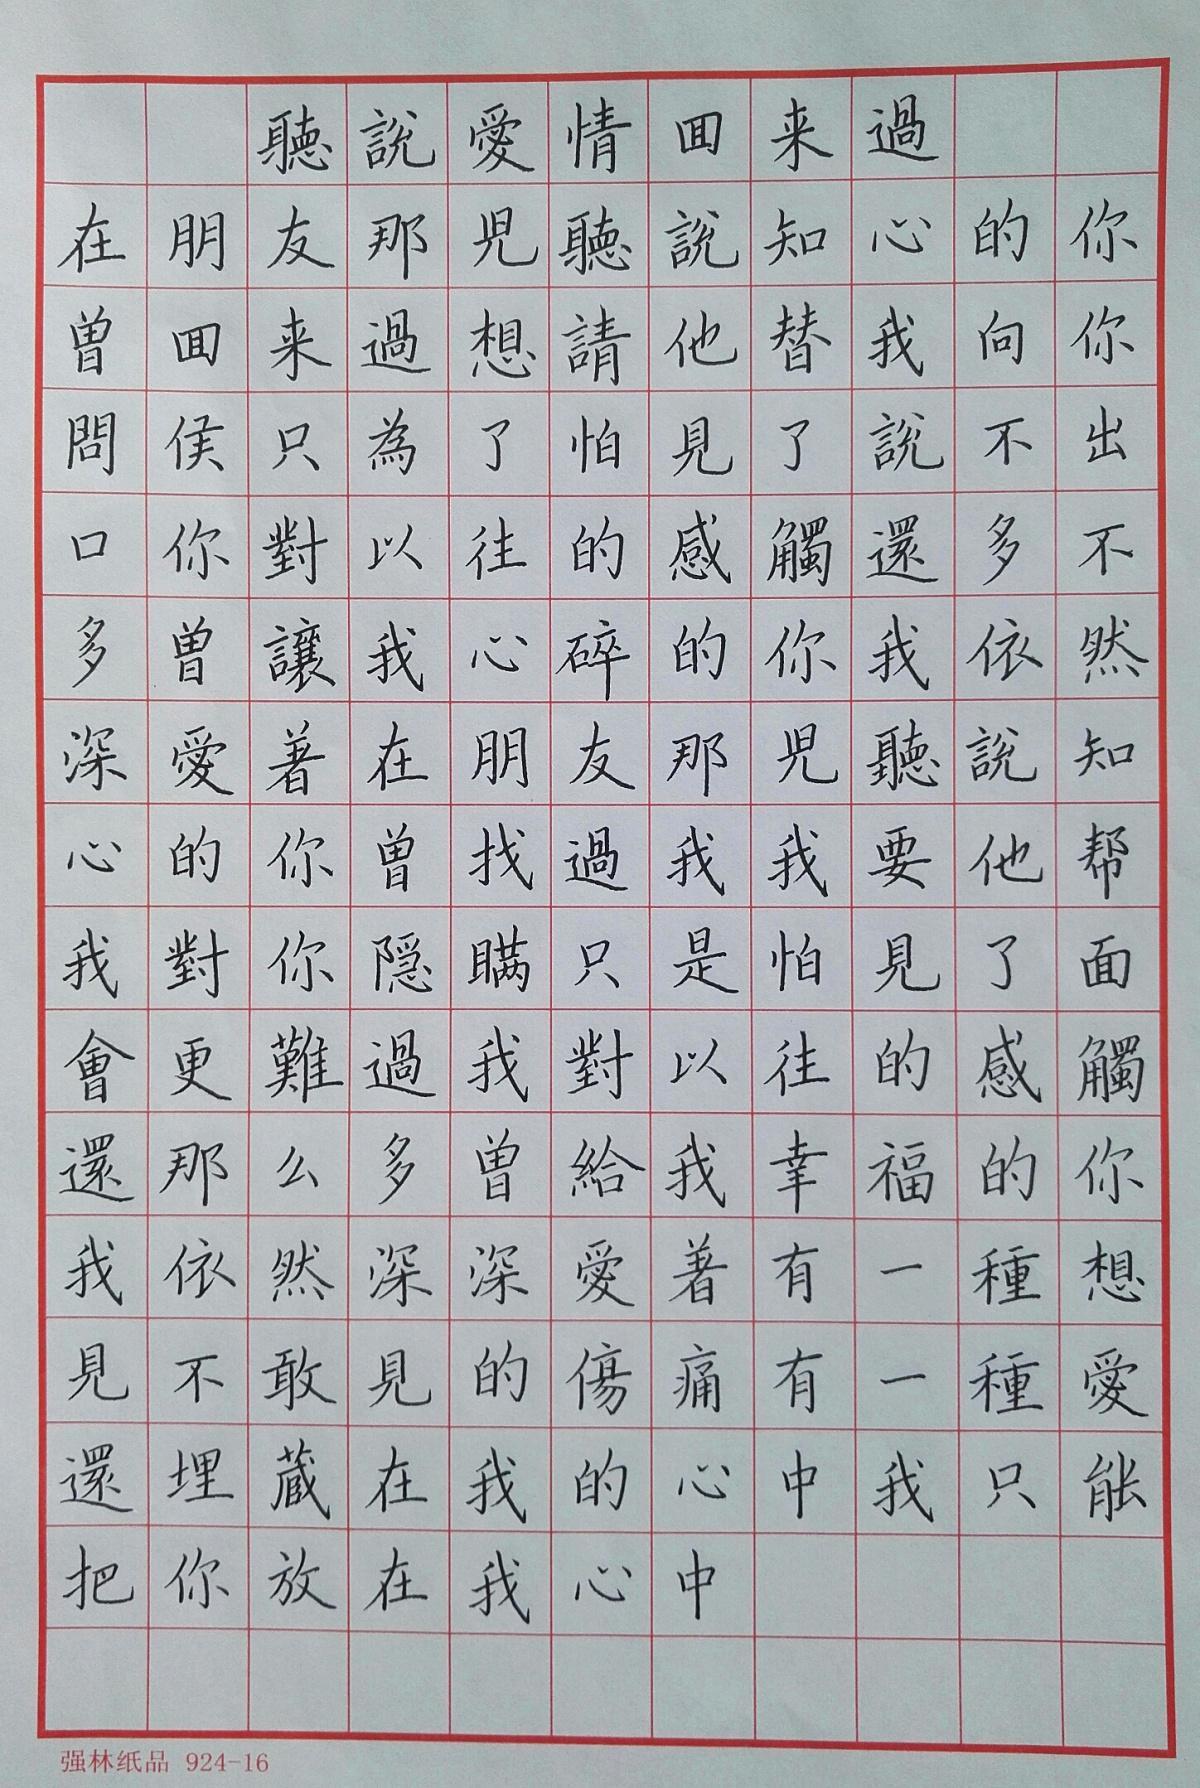 聽說愛情回来過
在朋友那兒聽說知心的你
曾回来過想請他替我向你
問侯只為了怕見了說不出
口你對以往的感觸還多不
多曾讓我心碎的你我依然
深愛著在朋友那兒聽說知
心的你曾找過我我要他帮
我對你隱瞞只是怕見了面
會更難過我對以往的感觸
還那么多曾給我幸福的你
我依然深深愛著有一種想
見不敢見的傷痛有一種愛
還埋蔵在我的心中我只能
把你放在我心中
强林纸品 924-16